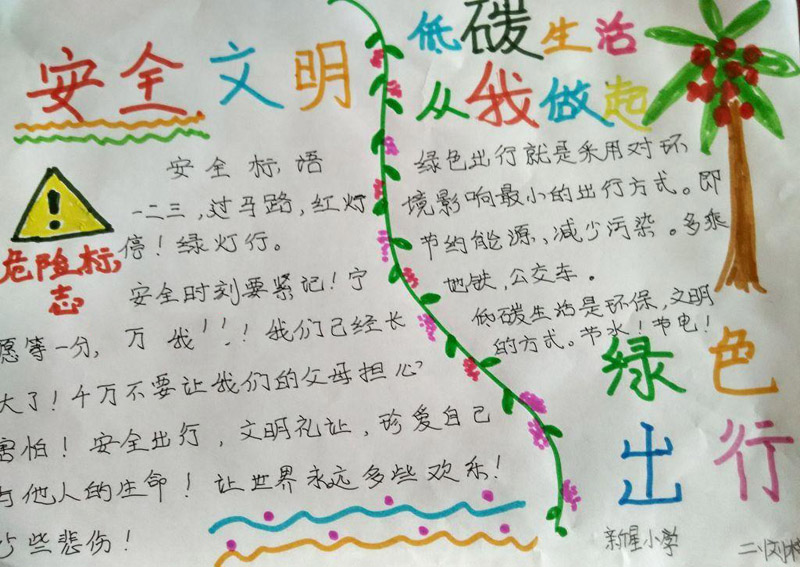 安全文明
安全标语
一二三，过马路，红灯
停！绿灯行。
危险标
志
安全时刻要紧记！宁
愿等一分，万
我们已经长
大了！千万不要让我们的父母担心
害怕！安全出行，文明礼让，珍爱自己
与他人的生命！让世界永远多些欢乐！
少些悲伤！
低碳生活
从我做起
绿色出行就是采用对环
境影响最小的出行方式。即
节约能源、减少污染。多乘
地铁，公交车。
低碳生活是环保，文明
的方式。节水！节电！
绿色
出行
新星小学
二